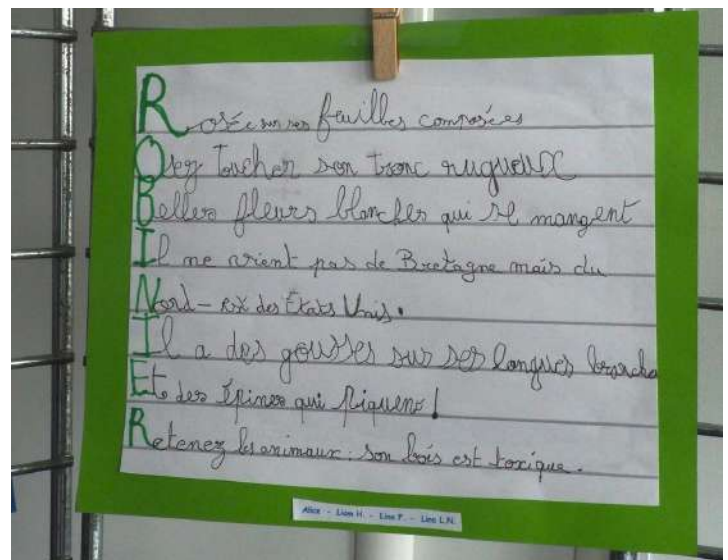 Rosée sur ses feuilles composées
Osez toucher son tronc rugueux
Belles fleurs blanches qui se mangent
Il me vient pas de Bretagne mais du
Nord-Est des États Unis.
Il a des gousses sur ses longues branches
Et des épines qui piquent!
Retenez les animaux: son bois est toxique.
Alice - Liam H. - Lina P. - Lina L.N.